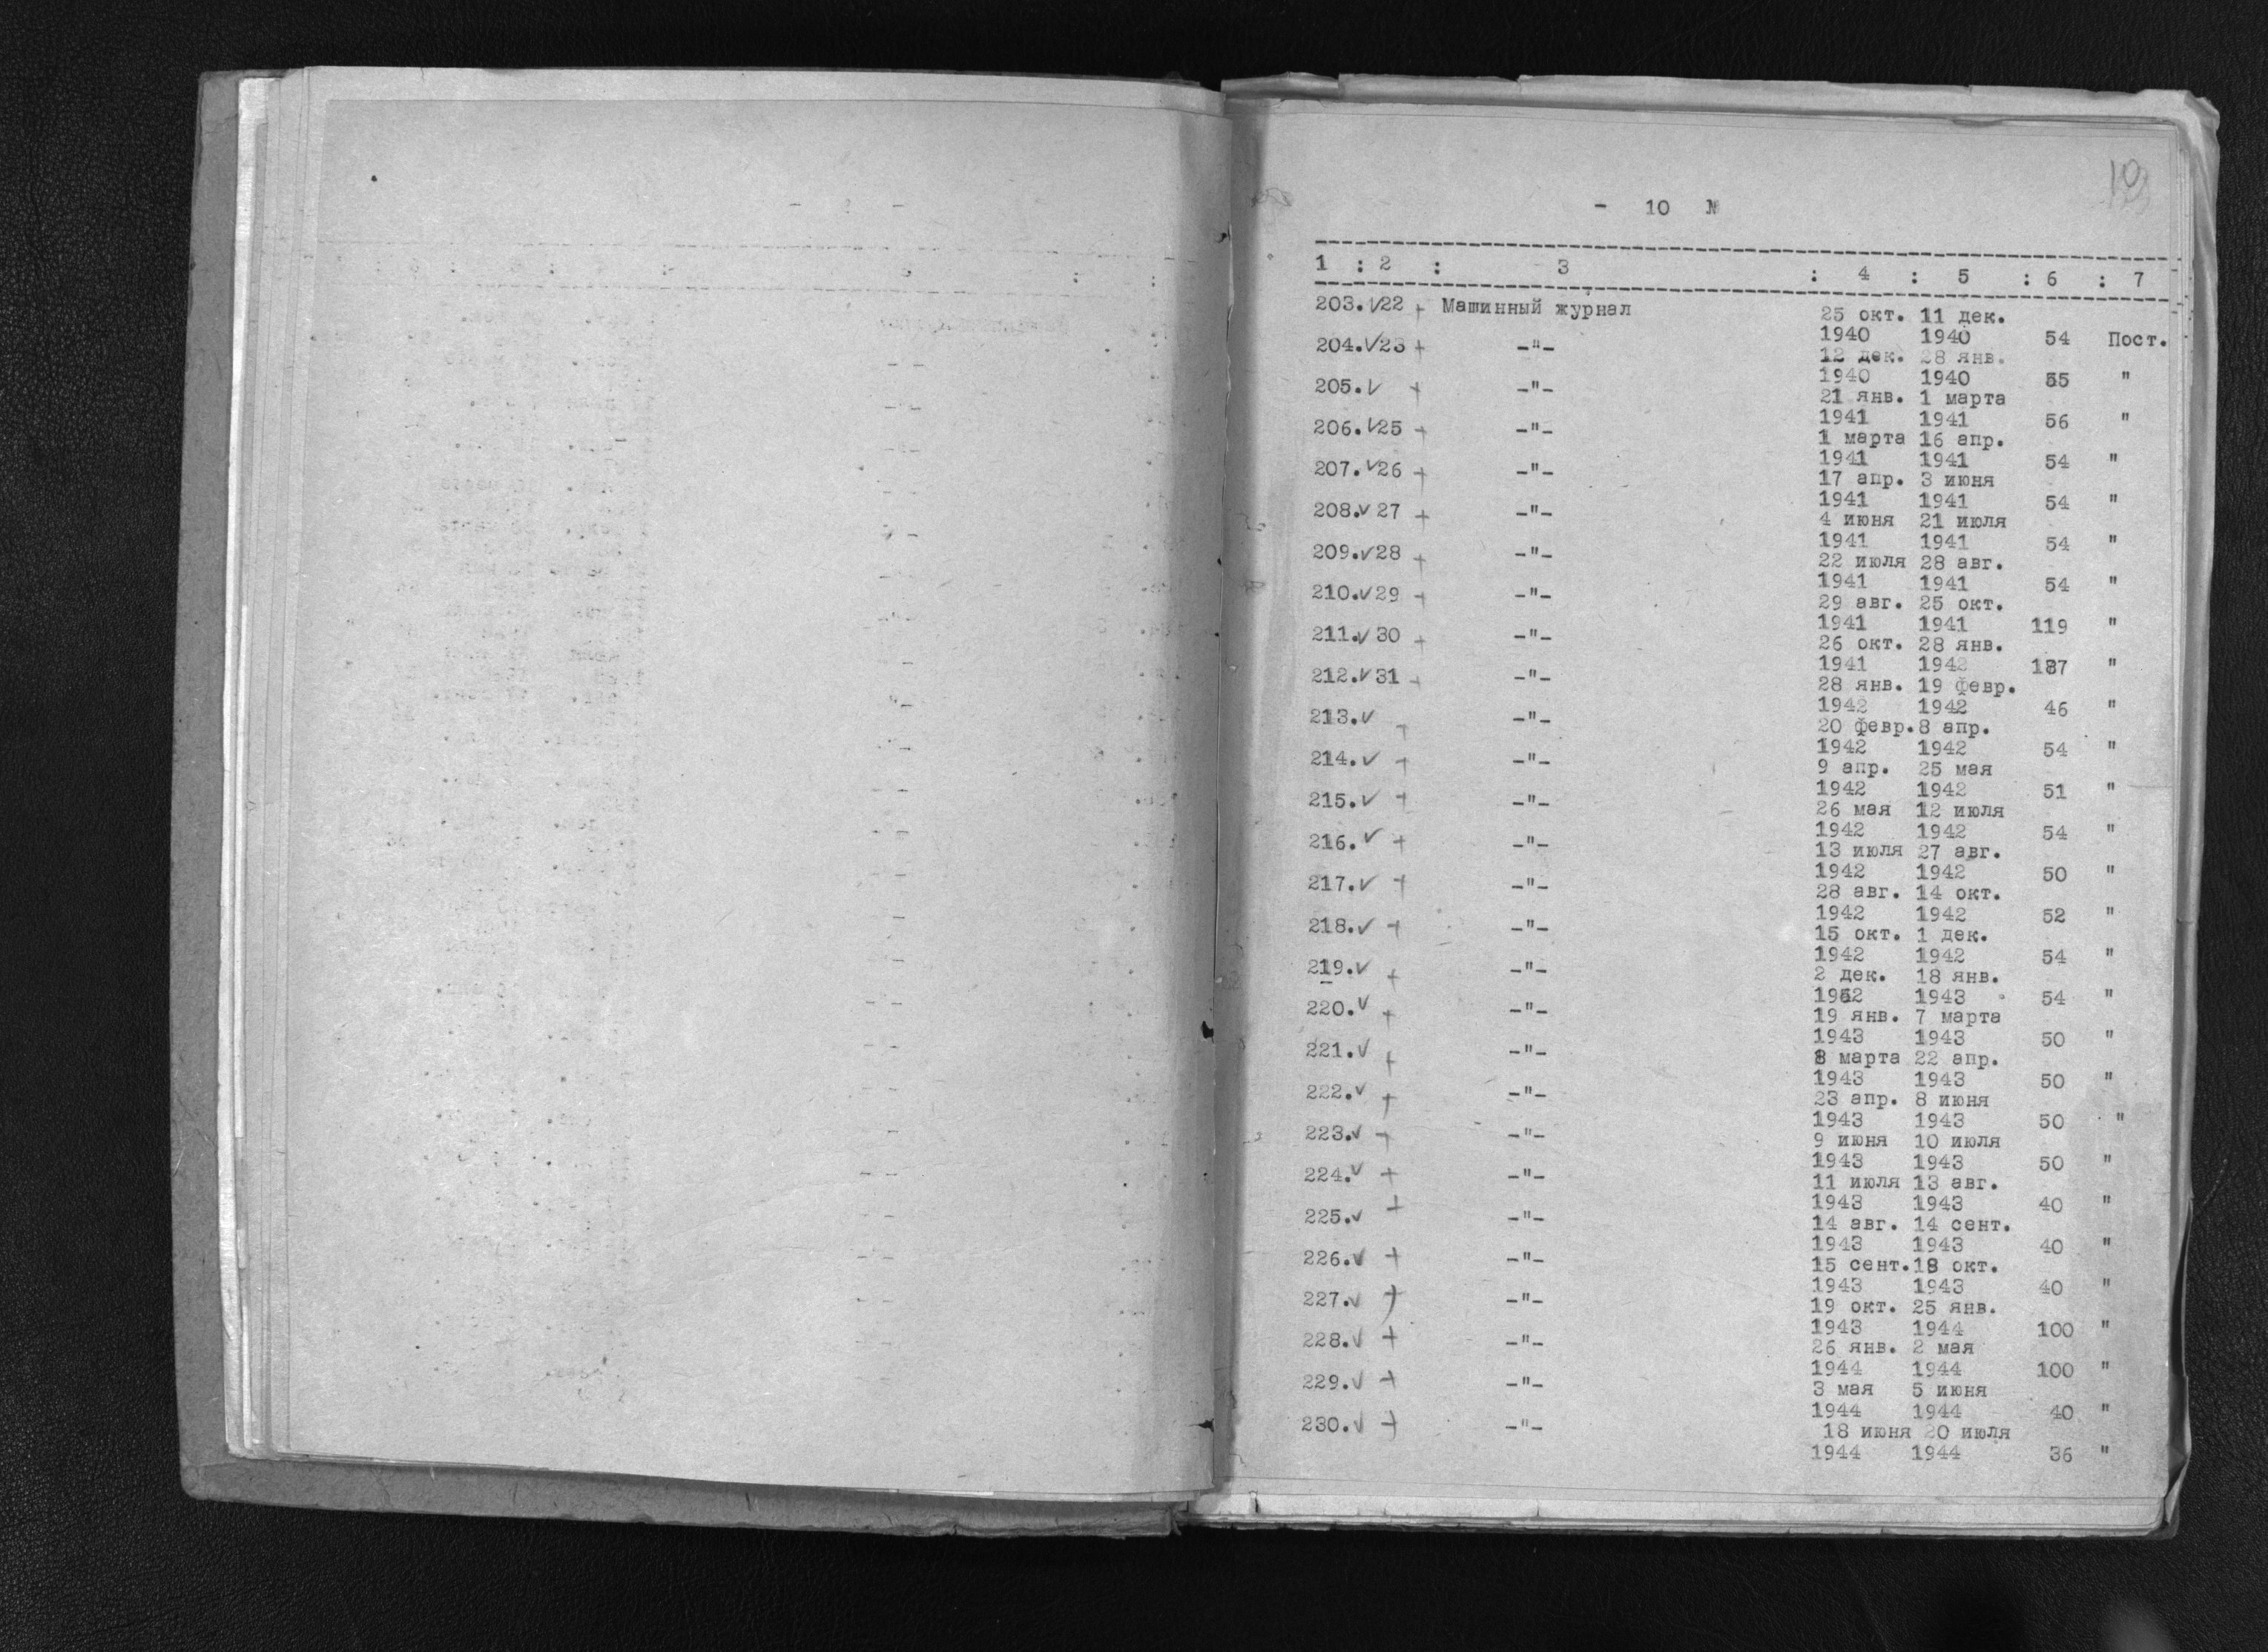 - 10 №
1 : 2 : 3 : 4 : 5 : 6 : 7
203. 22 + Машинный журнал 25 окт. 11 дек.
1940 1940 54 Пост.
204. 23 + -"- 12 дек. 28 янв.
1940 1940 55 "
205. + -"- 21 янв. 1 марта
1941 1941 56 "
206. 25 + -"- 1 марта 16 апр.
1941 1941 54 "
207. 26 + -"- 17 апр. 3 июня
1941 1941 54 "
208. 27 + -"- 4 июня 21 июля
1941 1941 54 "
209. 28 + -"- 22 июля 28 авг.
1941 1941 54 "
210. 29 + -"- 29 авг. 25 окт.
1941 1941 119 "
211. 30 + -"- 26 окт. 28 янв.
1941 1942 187 "
212. 31 + -"- 28 янв. 19 февр.
1942 1942 46 "
213. + -"- 20 февр. 8 апр.
1942 1942 54 "
214. + -"- 9 апр. 25 мая
1942 1942 51 "
215. + -"- 26 мая 12 июля
1942 1942 54 "
216. + -"- 13 июля 27 авг.
1942 1942 50 "
217. + -"- 28 авг. 14 окт.
1942 1942 52 "
218. + -"- 15 окт. 1 дек.
1942 1942 54 "
219. + -"- 2 дек. 18 янв.
1942 1943 54 "
220. + -"- 19 янв. 7 марта
1943 1943 50 "
221. + -"- 8 марта 22 апр.
1943 1943 50 "
222. + -"- 23 апр. 8 июня
1943 1943 50 "
223. + -"- 9 июня 10 июля
1943 1943 50 "
224. + -"- 11 июля 13 авг.
1943 1943 40 "
225. + -"- 14 авг. 14 сент.
1943 1943 40 "
226. + -"- 15 сент. 18 окт.
1943 1943 40 "
227. + -"- 19 окт. 25 янв.
1943 1944 100 "
228. + -"- 26 янв. 2 мая
1944 1944 100 "
229. + -"- 3 мая 5 июня
1944 1944 40 "
230. + -"- 18 июня 20 июля
1944 1944 36 "